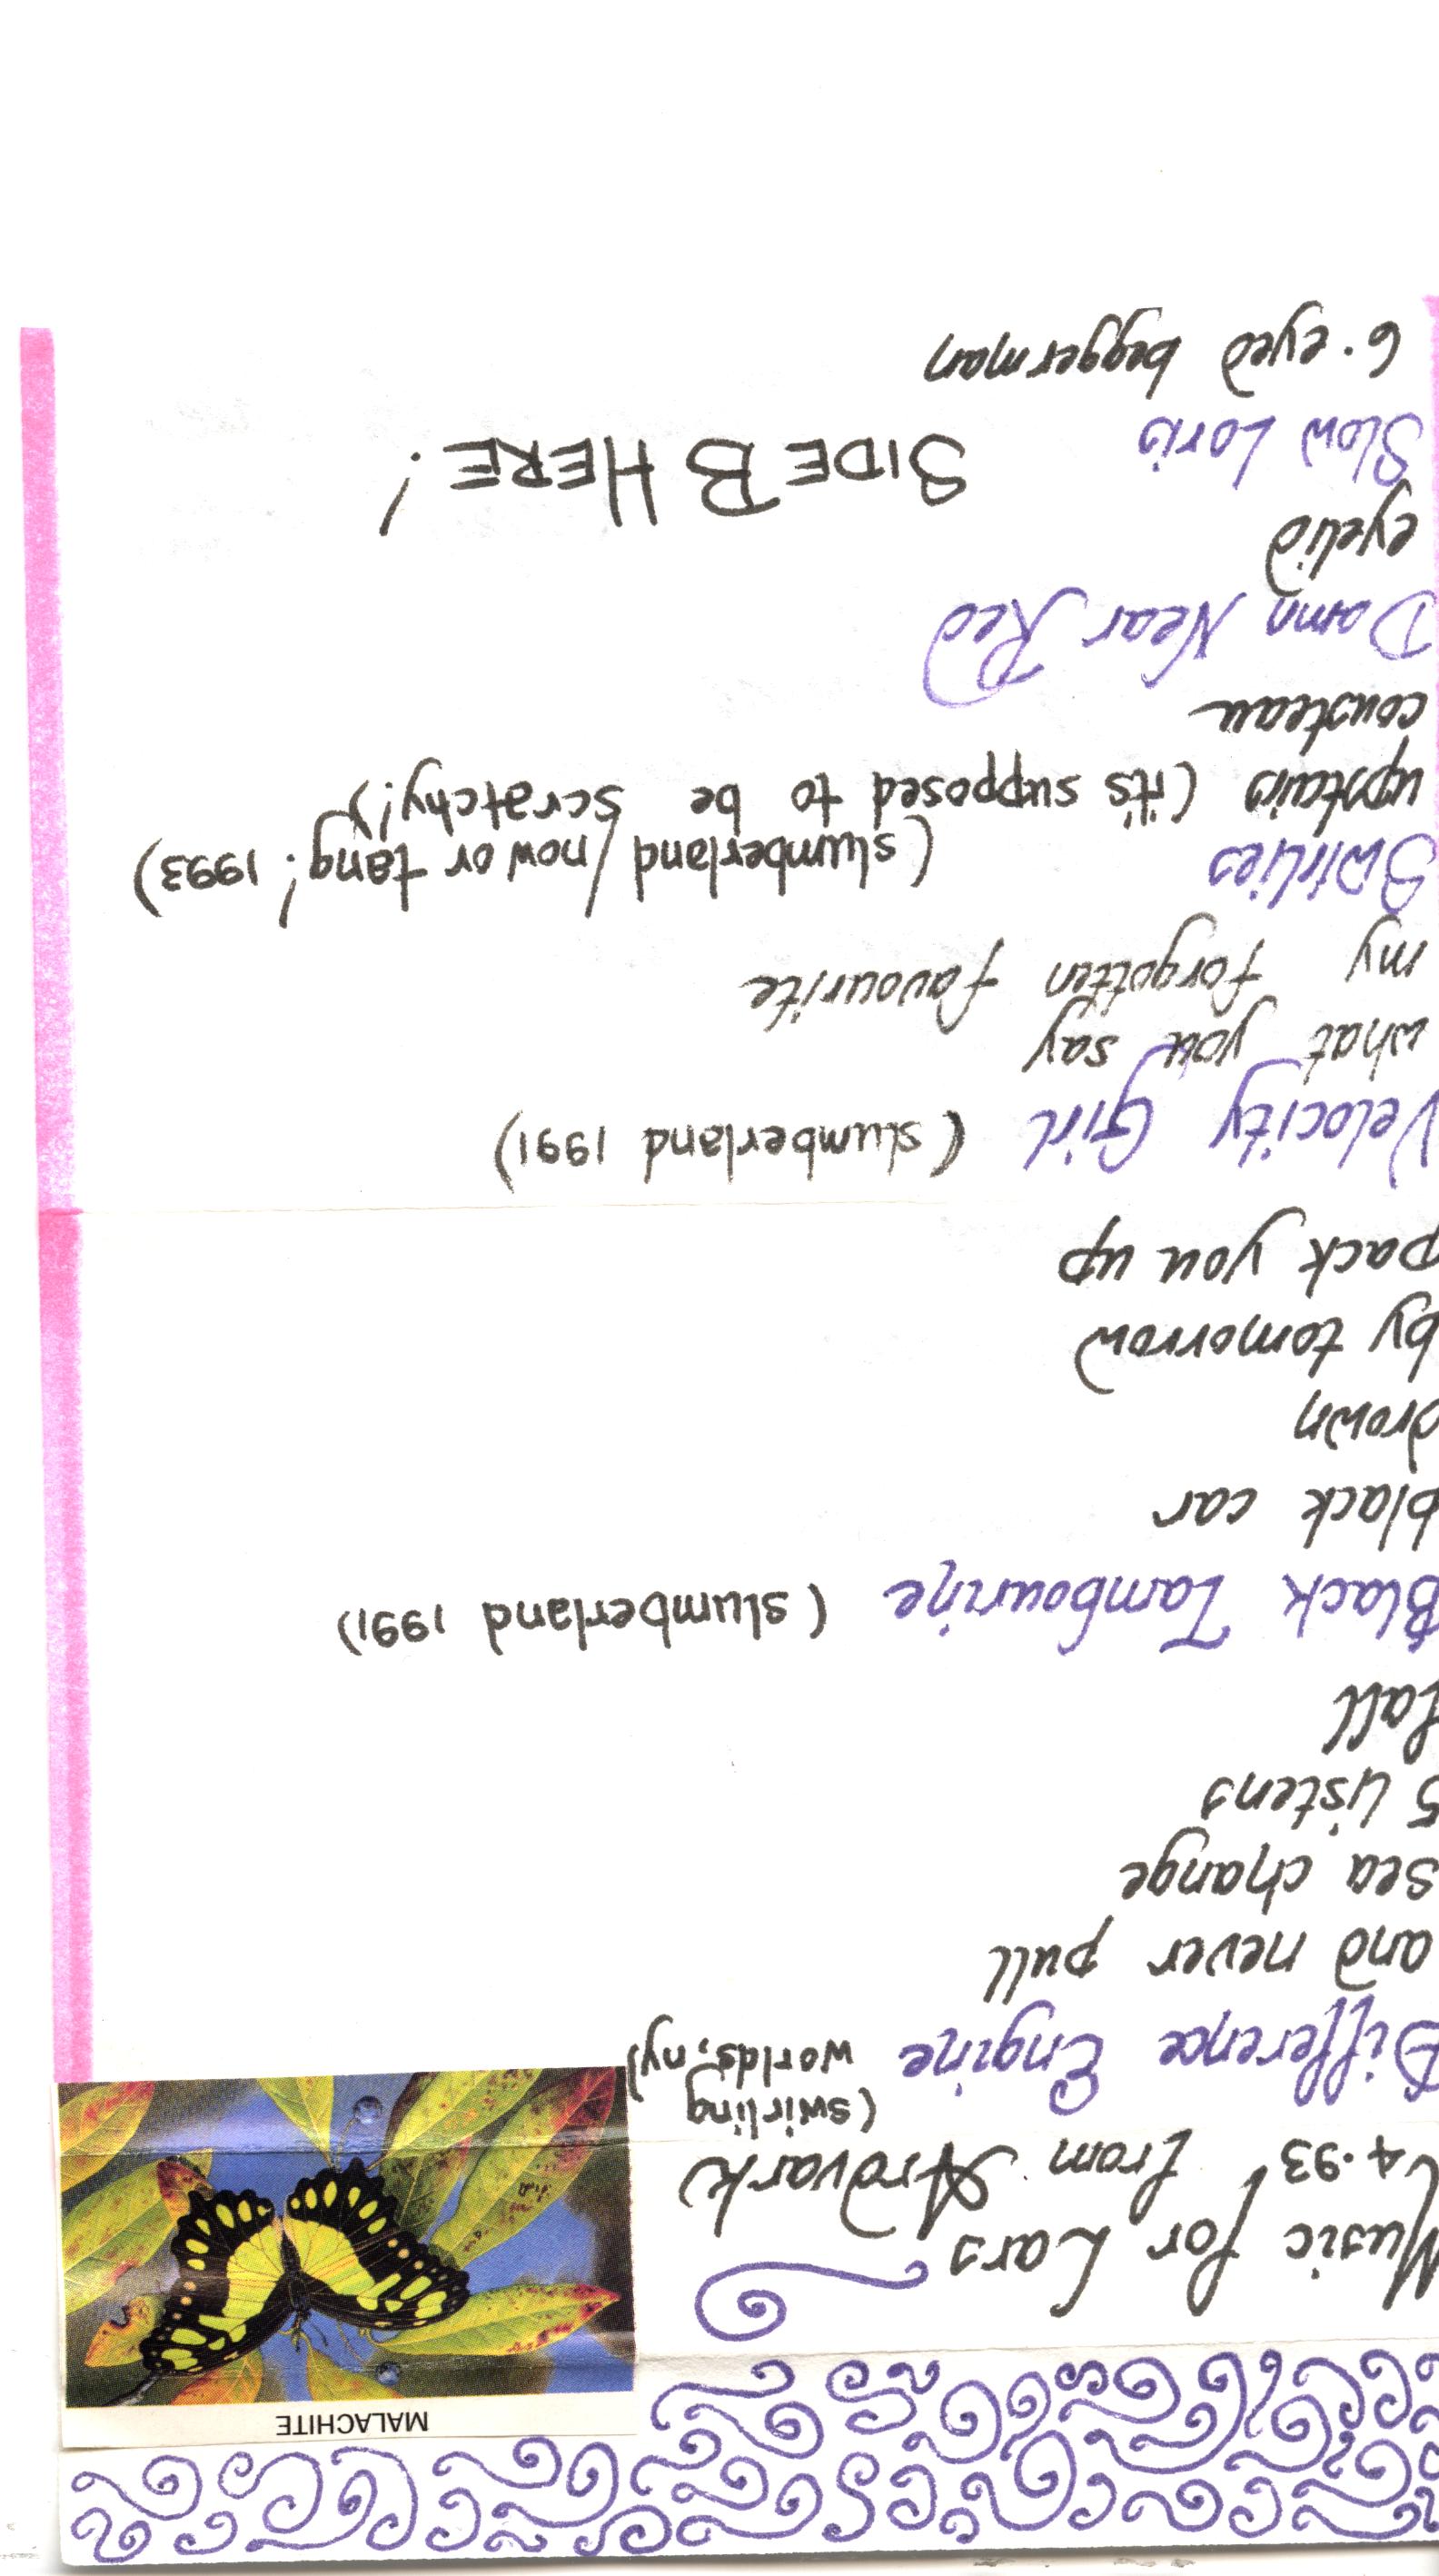 MALACHITE
Music for Cars
4.93 from Ardvark
Difference Engine (swirling worlds, ny)
and never pull
sea change
5 listens
fall
Black Tambourine (slumberland 1991)
black car
drown
by tomorrow
pack you up
Velocity Girl (slumberland 1991)
what you say
my forgotten favourite
Swirlies (slumberland/now or tang! 1993)
upstairs (it's supposed to be scratchy!)
cousteau
Damn Near Red
eyelid
Slow Loris
6·eyed beggerman
SIDE B HERE!